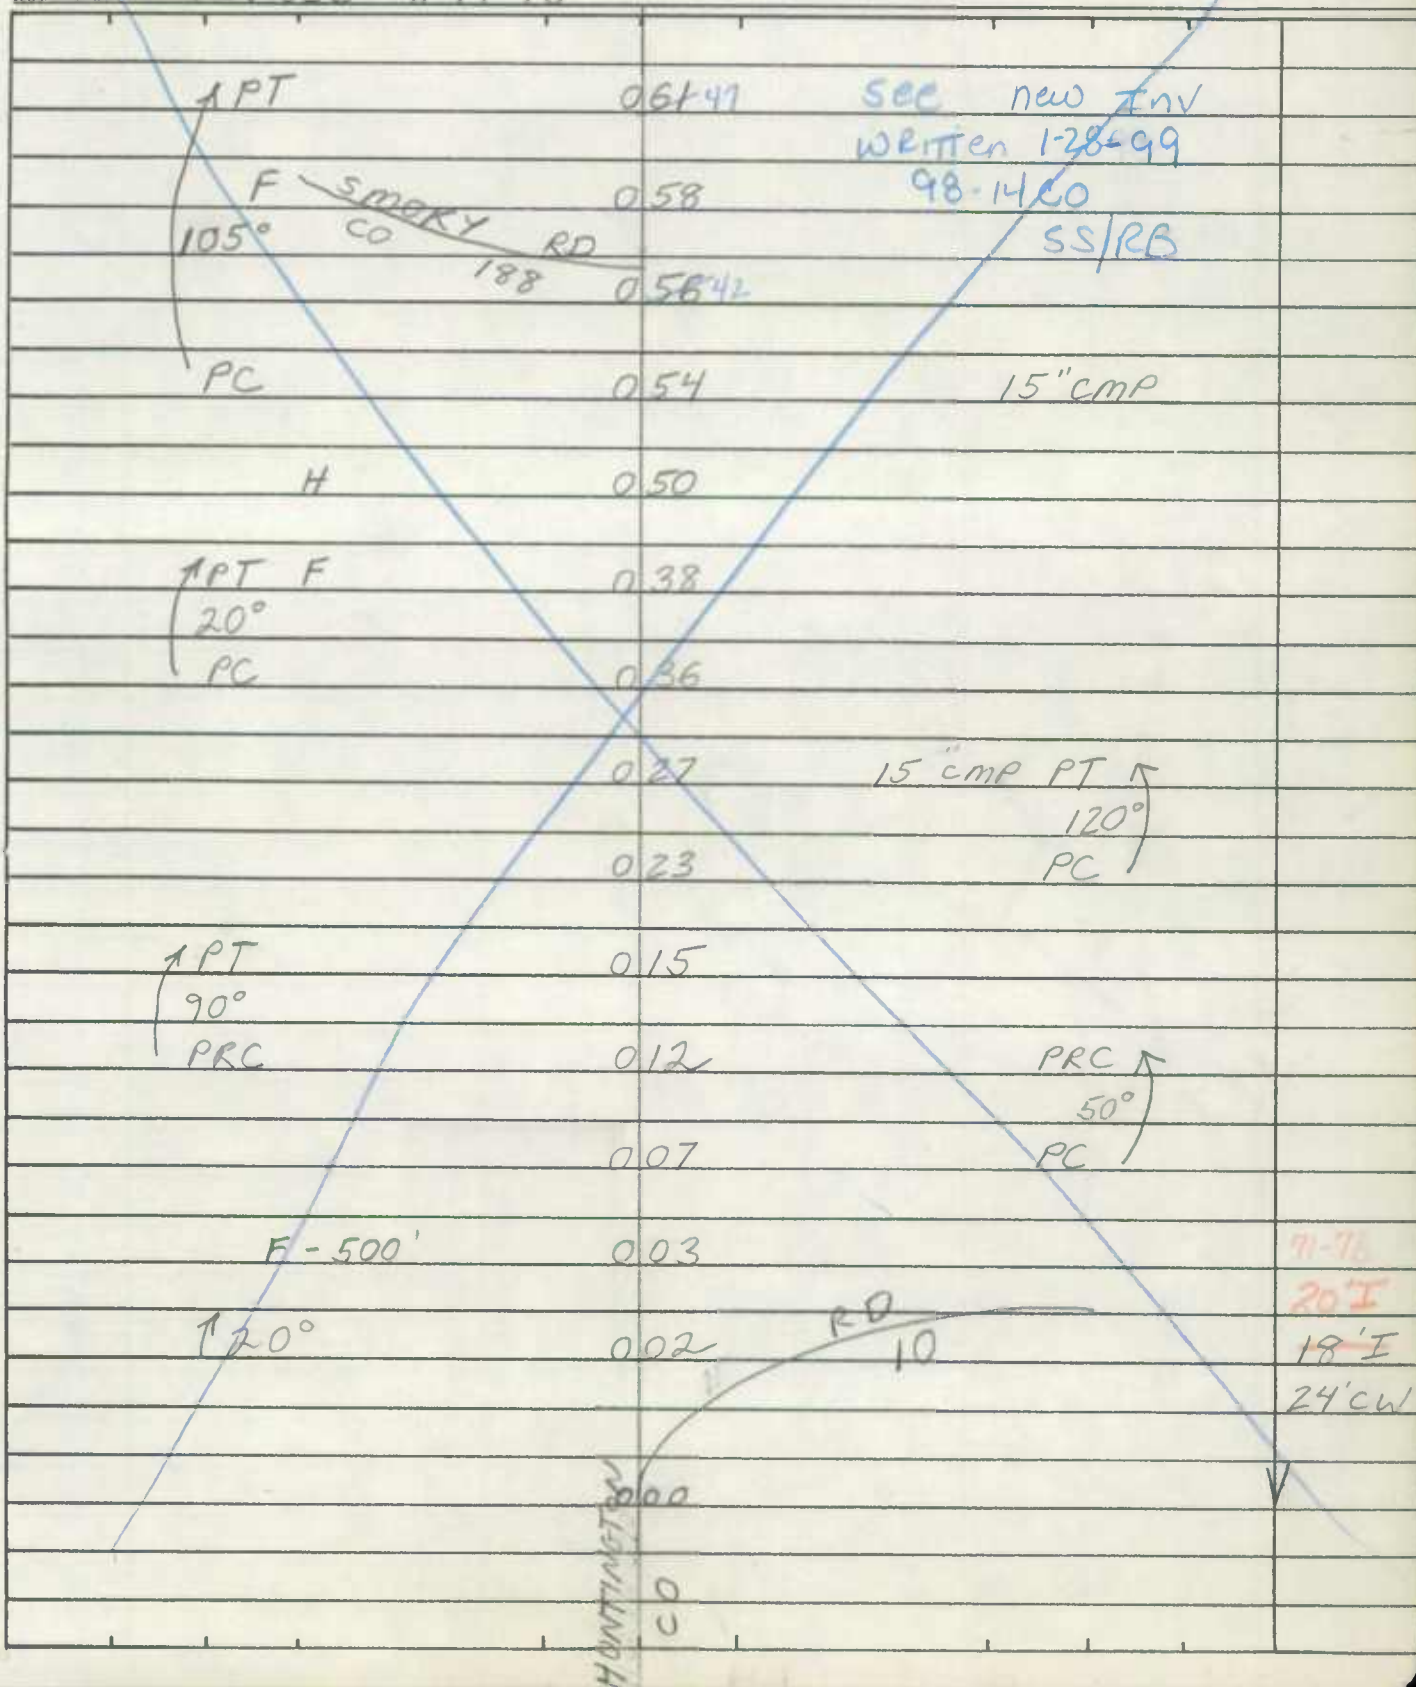 PT 0 61 47 see new Inv
WRITTen 1-28-99
F SMOKY 0 58 98-14 CO
105° CO RD SS/RB
188 0 56 42
PC 0 54 15" CMP
H 0 50
PT F 0 38
20°
PC 0 36
0 27 15" CMP PT
120°
0 23 PC
PT 0 15
90°
PRC 0 12 PRC
50°
0 07 PC
F - 500' 0 03
20' I
RD
20° 0 02 10 18' I
24' CW
0 00
HUNTINGTON
CO